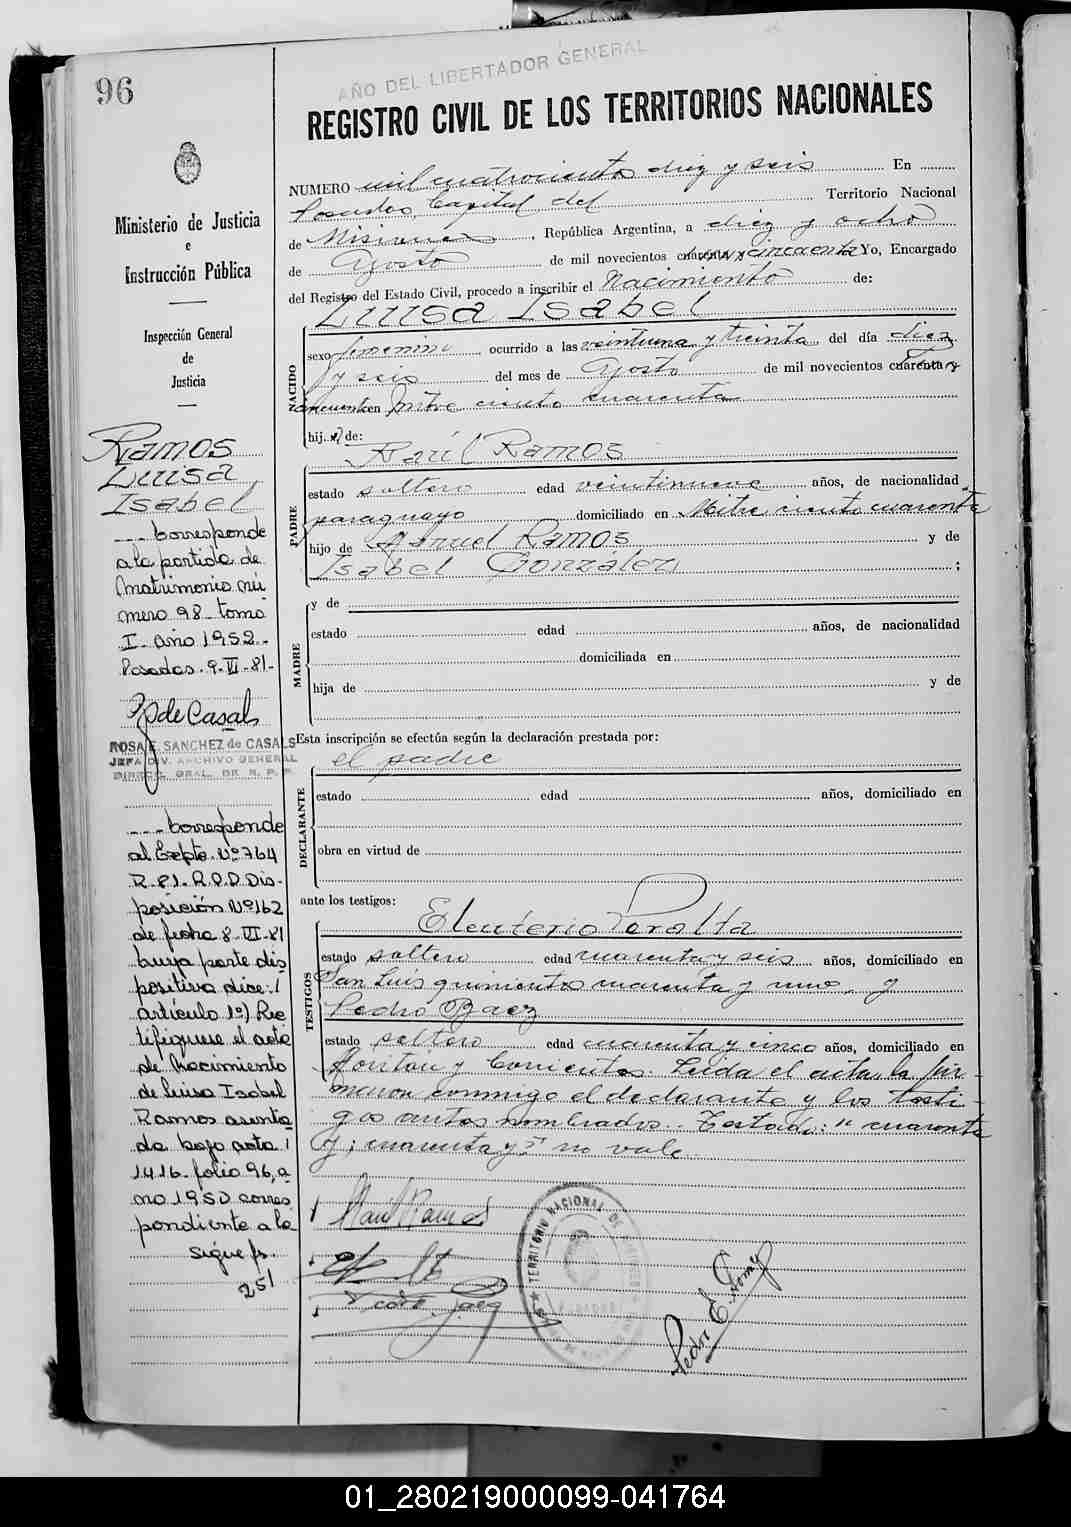 96
AÑO DEL LIBERTADOR GENERAL
REGISTRO CIVIL DE LOS TERRITORIOS NACIONALES
Ministerio de Justicia
e
Instrucción Pública
Inspección General
de
Justicia
Ramos
Luisa
Isabel
--- Corresponde
a la partida de
Matrimonio nú
mero 98 tomo
I año 1952.-
Posadas. 9-VI-81-
R de Casals
ROSA E. SANCHEZ de CASALS
JEFA DIV. ARCHIVO GENERAL
DIREC. GRAL. DE R. P. P.
--- Corresponde
al Expte. Nº 764
R-81-R.P.P Dis-
posición Nº 162
de fecha 8-VI-81
cuya parte dis
positiva dice: /
artículo 1º) Rec
tifíquese el acta
de Nacimiento
de Luisa Isabel
Ramos asenta
da bajo acta /
1416 folio 96, a
ño 1950 corres
pondiente a la
sigue fs.
251
NUMERO mil cuatrocientos diez y seis En
Posadas, Capital del Territorio Nacional
de Misiones, República Argentina, a diez y ocho
de Agosto de mil novecientos cuarenta y cincuenta Yo, Encargado
del Registro del Estado Civil, procedo a inscribir el Nacimiento de:
Luisa Isabel
NACIDO
sexo femenino ocurrido a las veintiuna y treinta del día diez
y seis del mes de Agosto de mil novecientos cuarenta y
cincuenta en Mitre ciento cuarenta
hij a de:
Raúl Ramos
PADRE
estado soltero edad veintinueve años, de nacionalidad
paraguayo domiciliado en Mitre ciento cuarenta
hijo de Manuel Ramos y de
Isabel González ;
MADRE
y de
estado edad años, de nacionalidad
domiciliada en
hija de y de
Esta inscripción se efectúa según la declaración prestada por:
el padre
DECLARANTE
estado edad años, domiciliado en
obra en virtud de
ante los testigos:
TESTIGOS
Eleuterio Peralta
estado soltero edad cuarenta y seis años, domiciliado en
San Luis quinientos cuarenta y uno, y
Pedro Baez
estado soltero edad cuarenta y cinco años, domiciliado en
y Corrientes. Leida el acta, la fir-
maron conmigo el declarante y los testi-
gos antes nombrados.- Testado: "cuarenta
y; cuarenta y" no vale.
Raúl Ramos
Pedro Baez
TERRITORIO NACIONAL DE MISIONES
Pedro E. Gomez
01_280219000099-041764